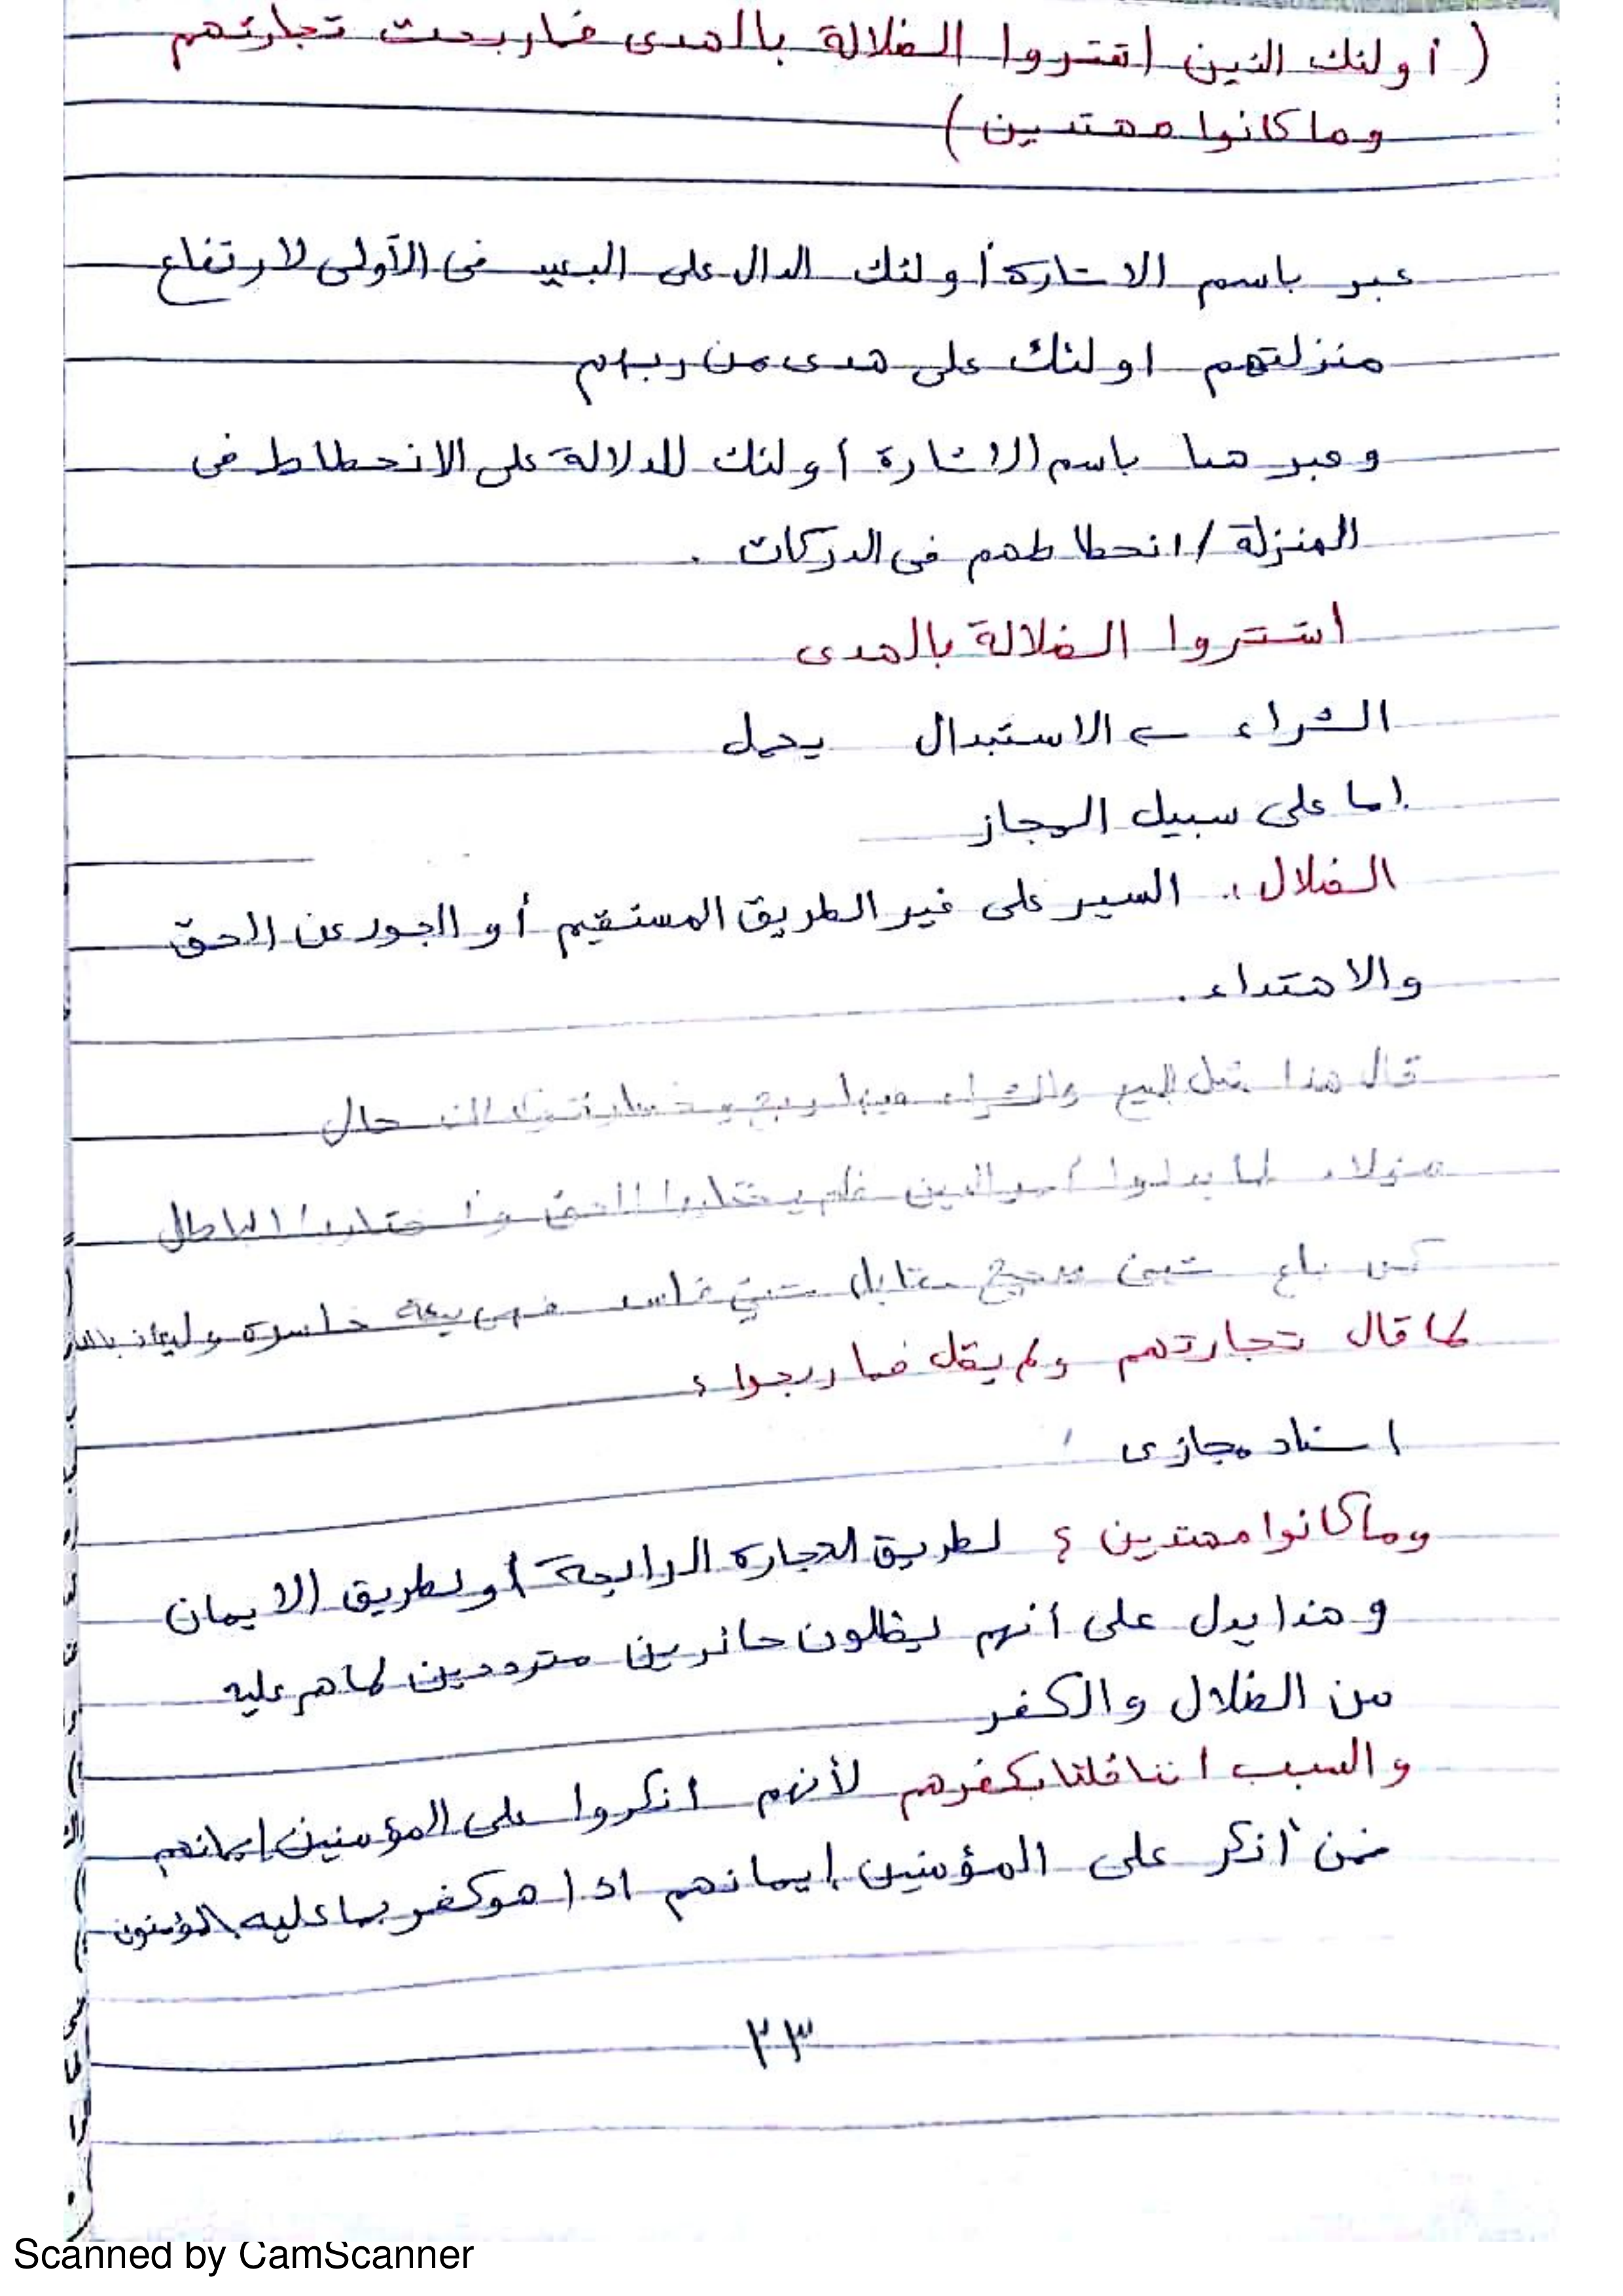 ( أولئك الذين اشتروا الضلالة بالهدى فما ربحت تجارتهم
وما كانوا مهتدين )
عبر باسم الاشارة أولئك الدال على البعيد في الأولى لارتفاع
منزلتهم اولئك على هدى من ربهم
وعبر هنا باسم الاشارة أولئك للدلالة على الانحطاط في
المنزلة / انحطاطهم في الدركات .
اشتروا الضلالة بالهدى
الشراء ← الاستبدال يحمل
اما على سبيل المجاز
الضلال : السير على غير الطريق المستقيم أو الجور عن الحق
والاهتداء .
قال هذا مثل البيع والشراء فيها ربح وخسارة حال
هؤلاء لما بدلوا أمر الدين فلم يختاروا الحق واختاروا الباطل
كمن باع شيئ صحيح مقابل شيئ فاسد فهي بيعة خاسرة والعياذ بالله
لما قال تجارتهم ولم يقل فما ربحوا ؟
اسناد مجازى
وما كانوا مهتدين ؟ لطريق التجارة الرابحة أو لطريق الايمان
وهذا يدل على أنهم ليظلون حائرين مترددين لما هم عليه
من الضلال والكفر
والسبب اننا قلنا بكفرهم لأنهم انكروا على المؤمنين إيمانهم
فمن أنكر على المؤمنين إيمانهم اذا هو كفر بما عليه المؤمنون
٢٣
Scanned by CamScanner